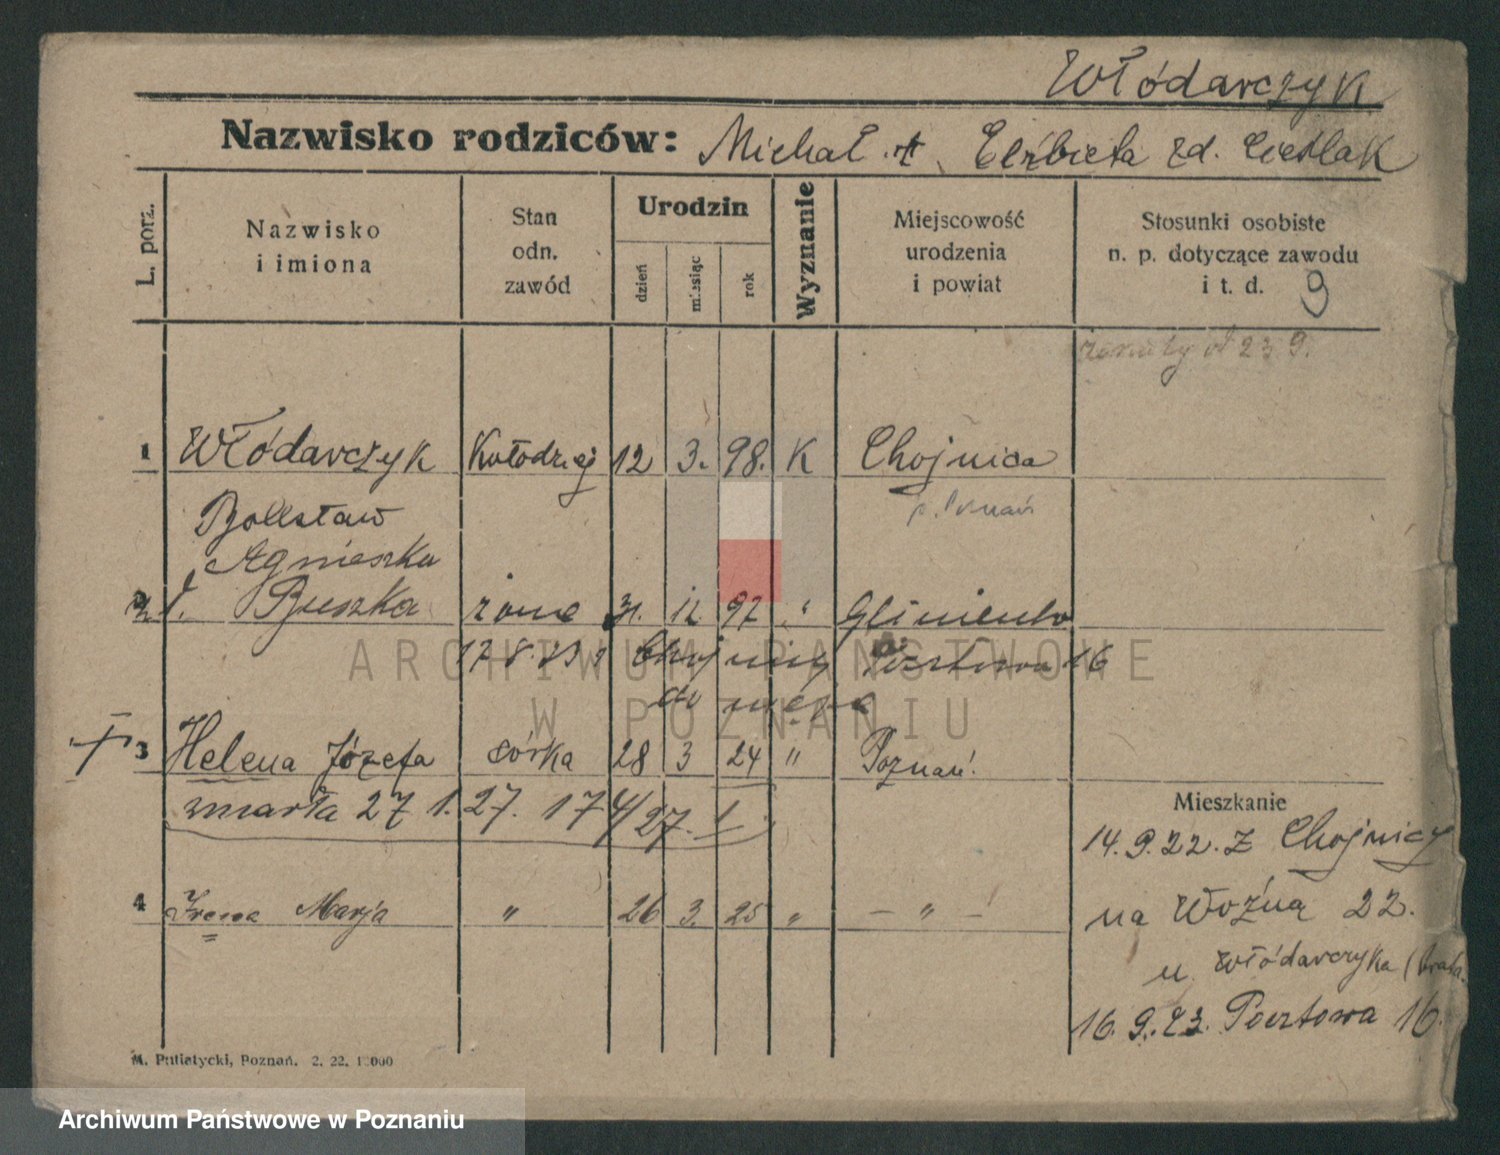 Włódarczyk
Nazwisko rodziców: Michał Elżbieta zd. Cieślak
L. porz.
Nazwisko i imiona
Stan odn. zawód
Urodzin
dzień miesiąc rok
Wyznanie
Miejscowość urodzenia i powiat
Stosunki osobiste n. p. dotyczące zawodu i t. d. 9
żonaty od 23 9.
1 Włódarczyk Kołodziej 12 3. 98. K Chojnica
Bolesław p. Poznań
Agnieszka
2 d. Buszka żona 31. 12 97 " Glinienko
17.8.23 z Chojnicy Pocztowa 16
do męża
3 Helena Józefa córka 28 3 24 " Poznań.
zmarła 27 1. 27. 174/27. I
Mieszkanie
14.9.22. z Chojnicy
4 Irena Marja " 26 3. 25 " — " —
na Woźną 22.
u Włódarczyka (brata
16.9.23. Pocztowa 16.
M. Putiatycki, Poznań. 2. 22.
ARCHIWUM PAŃSTWOWE
W POZNANIU
Archiwum Państwowe w Poznaniu